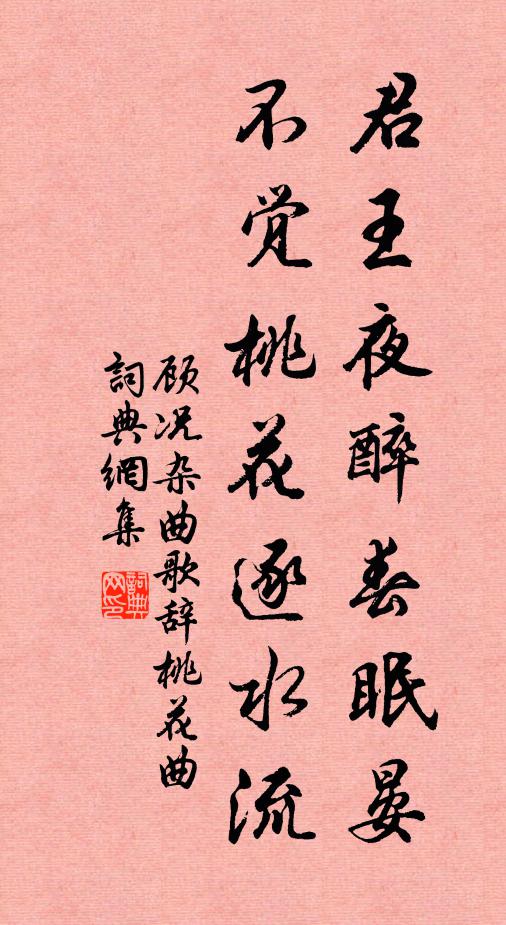 君王夜醉春眠晏
不觉桃花逐水流
顾况杂曲歌辞桃花曲
詞典網集
詞典网印